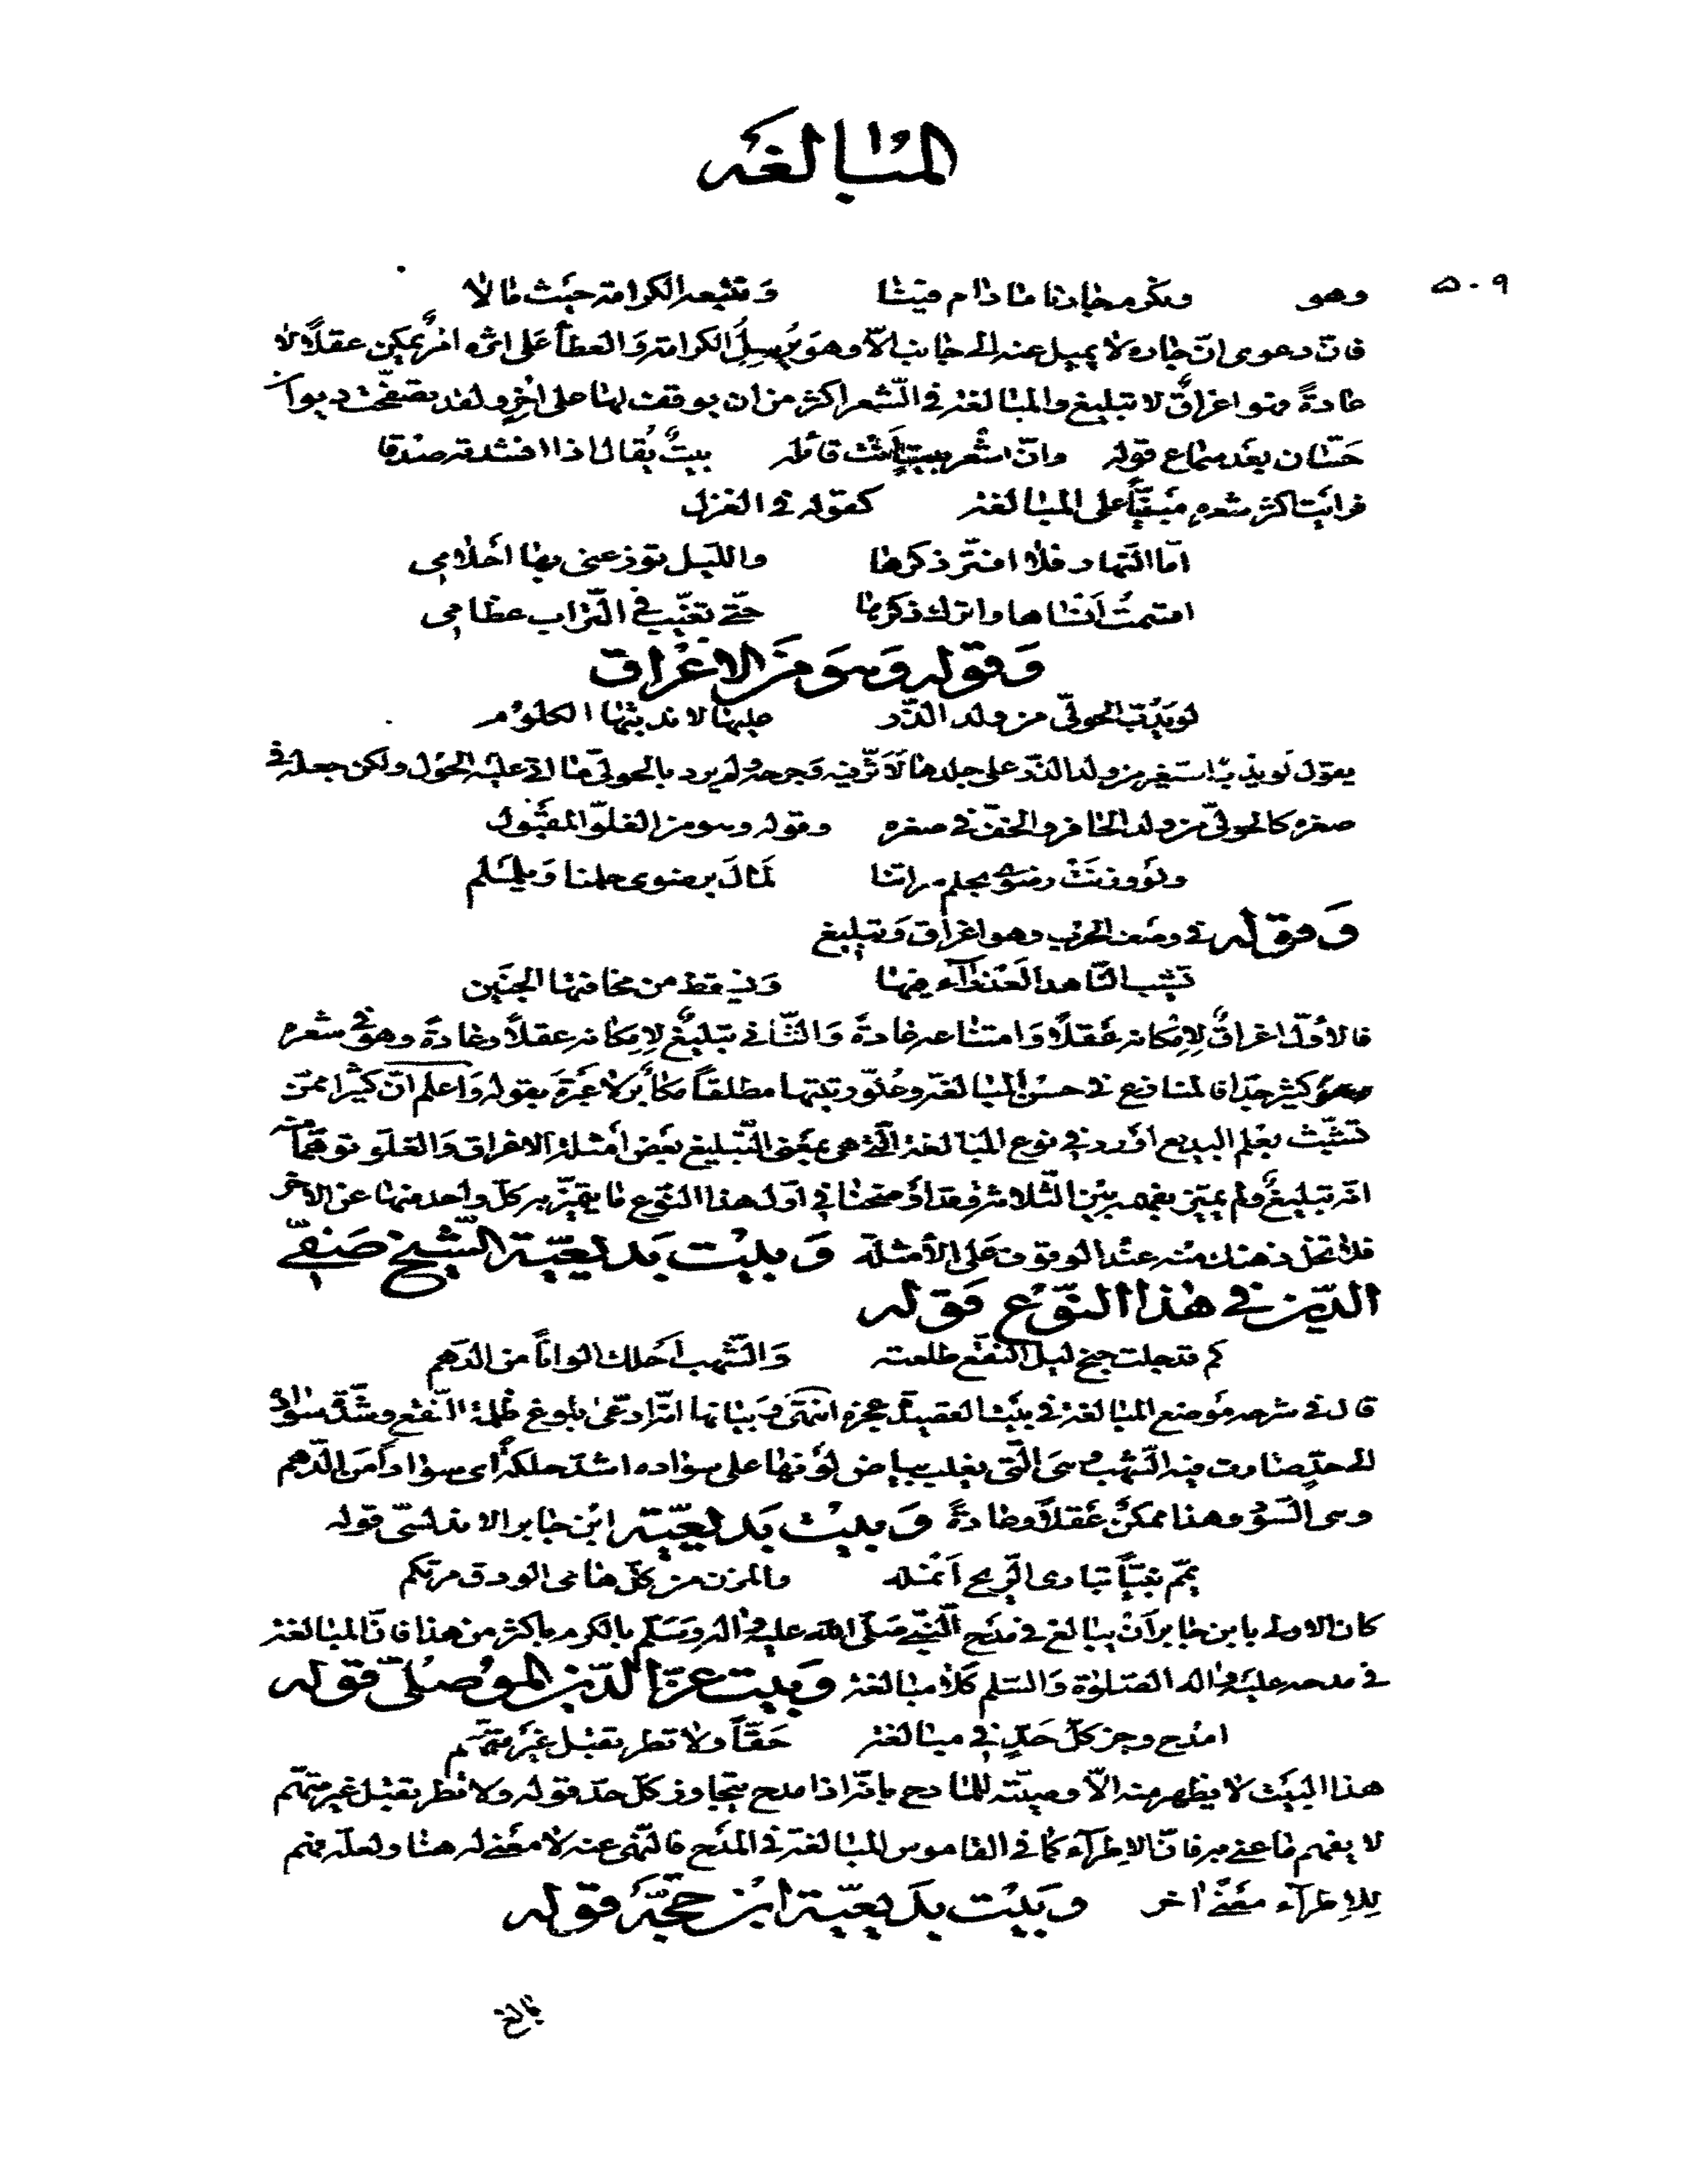 المبالغه
٥٠٩
وهو ونكرم جارنا ما دام فينا ونتبعه الكرامة حيث مالا
فانّ دعوى انّ جاره لا يميل عنه الى جانب الّا وهو يُرسِلُ الكرامة والعطاء على اثره امرٌ يمكن عقلًا لا
عادةً وهو اغراقٌ لا تبليغ والمبالغة في الشعر اكثر من ان يوقف لها على اٰخرٍ ولقد تصفّحت ديوان
حسّان بعد سماع قوله وانّ اشعر بيتٍ انت قائله بيتٌ يُقال اذا انشدته صدقا
فرأيت اكثر شعره مبنيًّا على المبالغة كقوله في الغزل
امّا النّهار فلا افتّر ذكرها والليل توزعني بها احلامي
اقسمتُ اَنساها واترك ذكرها حتّى تغيّب في التّراب عظامي
وقوله وهو من الاغراق
لو يَدِبّ الحوليّ من ولد الذّر عليها لاندبتها الكلوم
يقول لو يدبّ الصّغير من ولد الذّر على جلدها لَاَثّر فيه وجرحه ولم يرد بالحوليّ ما اتى عليه الحول ولكن جعله في
صغره كالحوليّ من ولد الحافر والخفّ في صغره وقوله وهو من الغلوّ المقبول
ولو وزنت رضوى بحلم سراتنا لمال برضوى حلمنا ويلملم
وقوله في وصف الحرب وهو اغراق وتبليغ
تشيب النّاهد العذراء فيها ويسقط من مخافتها الجنين
فالاوّل اغراقٌ لإمكانه عقلًا وامتناعه عادةً والثّاني تبليغٌ لإمكانه عقلًا وعادةً وهو في شعره
كثير جدّا فالمنازع في حسن المبالغة وعلوّ رتبتها مطلقًا مكابر لا عبرة بقوله واعلم انّ كثيرا ممّن
تشبّث بعلم البديع اورد في نوع المبالغة الّتي هي بمعنى التّبليغ بعض امثلة الاغراق والغلوّ توهّمًا منه
انّه تبليغٌ ولم يميّز بفهمه بين الثّلاثة وقد اوضحنا في اوّل هذا النّوع ما يتميّز به كلّ واحد منها عن الاٰخر
فلا تخل ذهنك منه عند الوقوف على الأمثلة وبيت بديعيّة الشّيخ صفيّ
الدّين في هذا النّوع قوله
كم قد جلت جنح ليل النّقع طلعته والشّهب احلك الوانًا من الدّهم
قال في شرحه موضع المبالغة في بيت القصيدة عجزه انتهى وبيانها انّه ادّعى بلوغ ظلمة النّقع وشدّة سواده
الى حدٍّ صارت فيه الشّهب وهي الّتي يغلب بياض لونها على سواده اشدّ حلكة اى سوادا من الدّهم
وهي السّود وهذا ممكنٌ عقلًا وعادةً وبيت بديعيّة ابن جابر الاندلسّي قوله
يمّم نبيًّا تباري الرّيح اَنمله والمزن من كلّ هامي الودق مرتكم
كان الاولى بابن جابر اَن يبالغ في مدح النّبيّ صلّى الله عليه واٰله وسلّم بالكرم باكثر من هذا فانّ المبالغة
في مدحه عليه واٰله الصّلوٰة والسّلم كلا مبالغة وبيت عزّ الدّين الموصليّ قوله
امدح وجز كلّ حدّ في مبالغة حقّاً ولا تطر تقبل غير متّهم
هذا البيت لا يظهر منه الّا وصيّته للمادح بانّه اذا مدح يتجاوز كلّ حدّ فقوله ولا تطر تقبل غير متّهم
لا يفهم ما عنى به فانّ الاطرآء كما في القاموس المبالغة في المدح فالنّهي عنه لا معنى له هنا ولعلّه فهم
للاطرآء معنًى اٰخر وبيت بديعيّة ابن حجّة قوله
بالغ